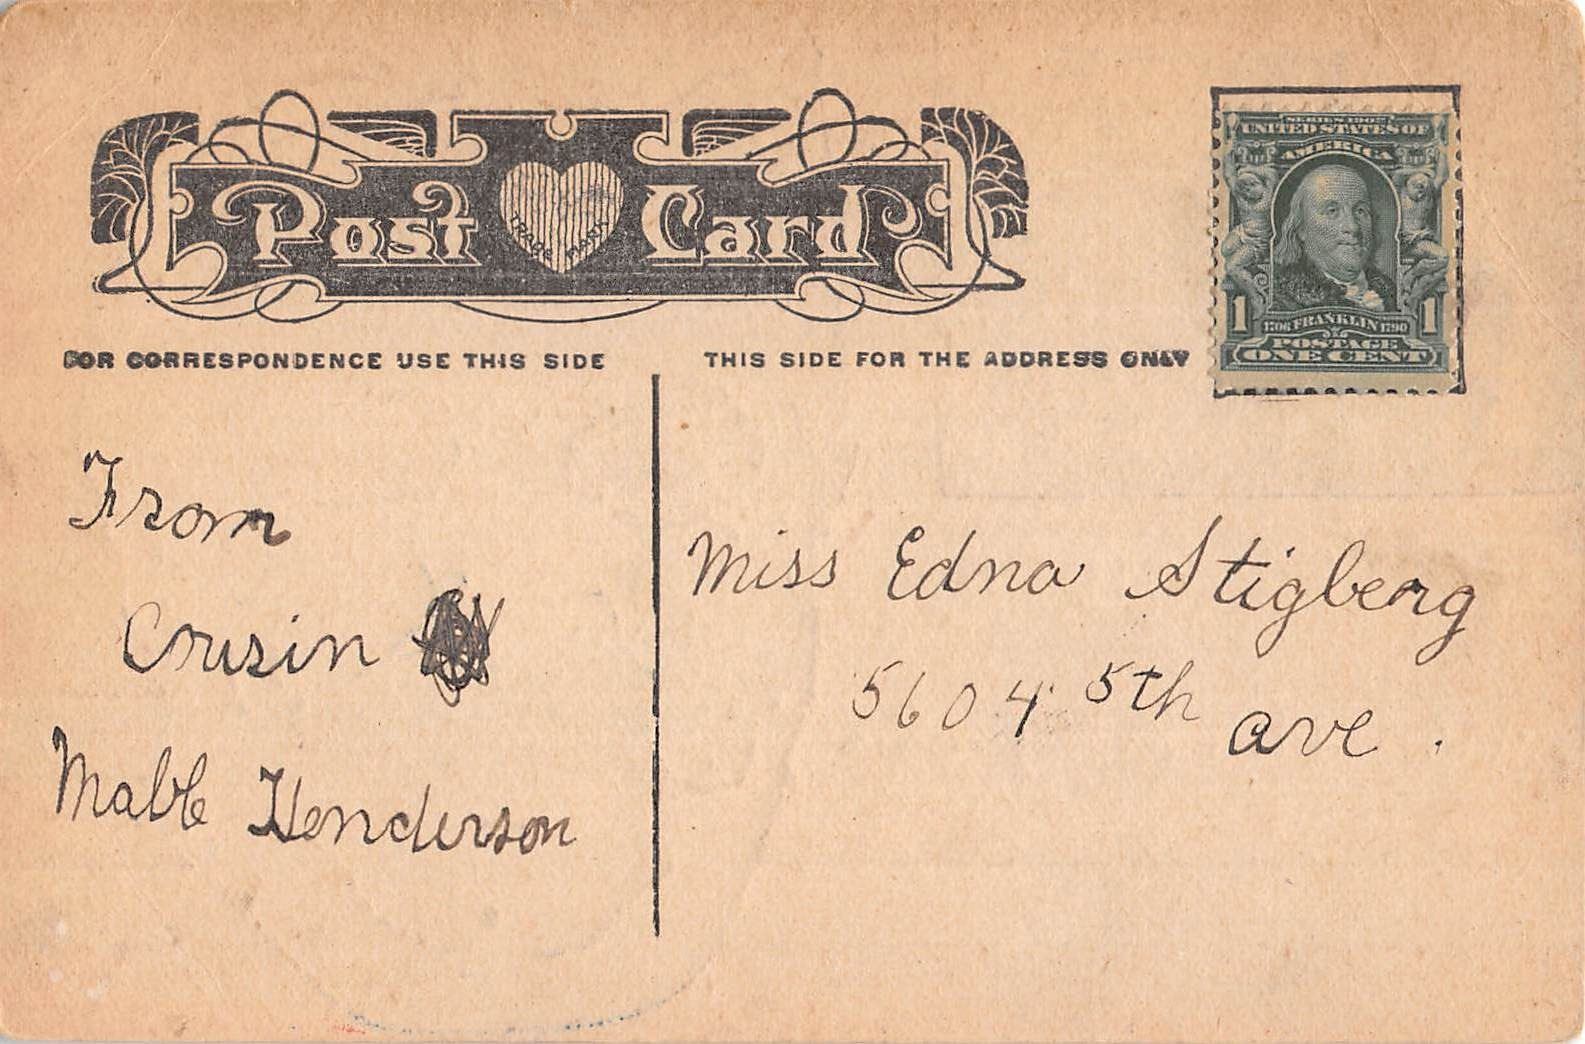 Post Card
FOR CORRESPONDENCE USE THIS SIDE
THIS SIDE FOR THE ADDRESS ONLY
SERIES 1902
UNITED STATES OF
AMERICA
1 1
1706 FRANKLIN 1790
POSTAGE
ONE CENT
From
Cousin
Mable Henderson
Miss Edna Stigberg
5604 5th ave.